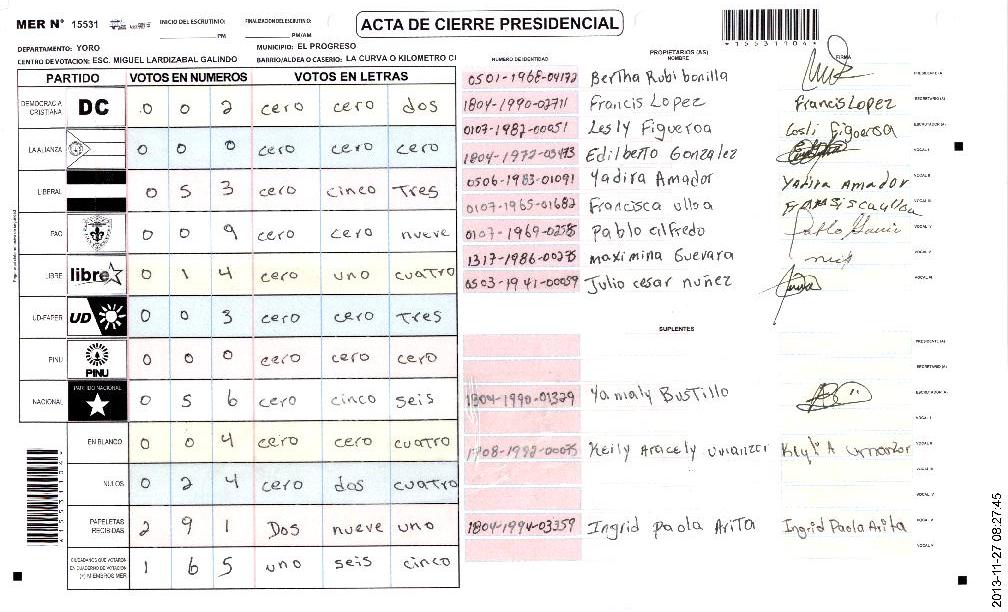 MER N° 15531 INICIO DEL ESCRUTINIO: PM FINALIZACION DEL ESCRUTINIO: PM/AM
ACTA DE CIERRE PRESIDENCIAL
DEPARTAMENTO: YORO MUNICIPIO: EL PROGRESO
CENTRO DE VOTACION: ESC. MIGUEL LARDIZABAL GALINDO BARRIO/ALDEA O CASERIO: LA CURVA O KILOMETRO CI
PARTIDO VOTOS EN NUMEROS VOTOS EN LETRAS
DEMOCRACIA CRISTIANA DC 0 0 2 cero cero dos
LA ALIANZA 0 0 0 cero cero cero
LIBERAL 0 5 3 cero cinco Tres
PAC 0 0 9 cero cero nueve
LIBRE libre 0 1 4 cero uno cuatro
UD-FAPER UD 0 0 3 cero cero Tres
PINU PINU 0 0 0 cero cero cero
NACIONAL PARTIDO NACIONAL 0 5 6 cero cinco seis
EN BLANCO 0 0 4 cero cero cuatro
NULOS 0 2 4 cero dos cuatro
PAPELETAS RECIBIDAS 2 9 1 Dos nueve uno
CIUDADANOS QUE VOTARON EN CUADERNO DE VOTACION (+) MIEMBROS MER 1 6 5 uno seis cinco
NUMERO DE IDENTIDAD PROPIETARIOS (AS) NOMBRE FIRMA
0501-1968-04172 Bertha Rubi bonilla PRESIDENTE(A)
1804-1990-02711 Francis Lopez Francis Lopez SECRETARIO (A)
0107-1982-00051 Lesly Figueroa Losli Figueroa ESCRUTADOR (A)
1804-1972-03473 Edilberto Gonzalez VOCAL I
0506-1983-01091 Yadira Amador Yadira Amador VOCAL II
0107-1965-01682 Francisca ulloa VOCAL III
0107-1969-02515 Pablo alfredo VOCAL IV
1317-1986-00275 maximina Guevara VOCAL V
0503-1941-00059 Julio cesar nuñez VOCAL VI
SUPLENTES
PRESIDENTE (A)
SECRETARIO (A)
1804-1990-01329 Yamaly Bustillo ESCRUTADOR (A)
VOCAL I
Keily Aracely umanzor Keyli A umanzor VOCAL II
VOCAL III
VOCAL IV
1804-1994-03359 Ingrid paola Arita Ingrid Paola Arita VOCAL V
VOCAL VI
2013-11-27 08:27:45